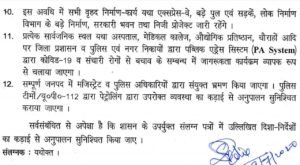 10. इस अवधि में सभी वृहद निर्माण-कार्य यथा एक्सप्रेस-वे, बड़े पुल एवं सड़कें, लोक निर्माण
विभाग के बड़े निर्माण, सरकारी भवन तथा निजी प्रोजेक्ट जारी रहेंगे ।
11. प्रत्येक सार्वजनिक स्थल यथा अस्पताल, मेडिकल कालेज, औद्योगिक आस्थान, चौराहों आदि
पर जिला प्रशासन व पुलिस एवं नगर निकायों द्वारा पब्लिक एड्रेस सिस्टम (PA System)
द्वारा कोविड-19 व संचारी रोगों से बचाव के सम्बन्ध में जागरूकता कार्यक्रम व्यापक रूप
से चलाया जाएगा ।
12. सम्पूर्ण जनपद में मजिस्ट्रेट व पुलिस अधिकारियों द्वारा संयुक्त भ्रमण किया जाएगा । पुलिस
टीमों/यू०पी०-112 द्वारा पेट्रोलिंग द्वारा उपरोक्त व्यवस्था का कड़ाई से अनुपालन सुनिश्चित
कराया जाएगा ।
सर्वसंबंधित से अपेक्षा है कि शासन के उपर्युक्त संलग्न पत्रों में उल्लिखित दिशा-निर्देशों
का कड़ाई से अनुपालन सुनिश्चित किया जाए ।
संलग्नक : यथोक्त ।